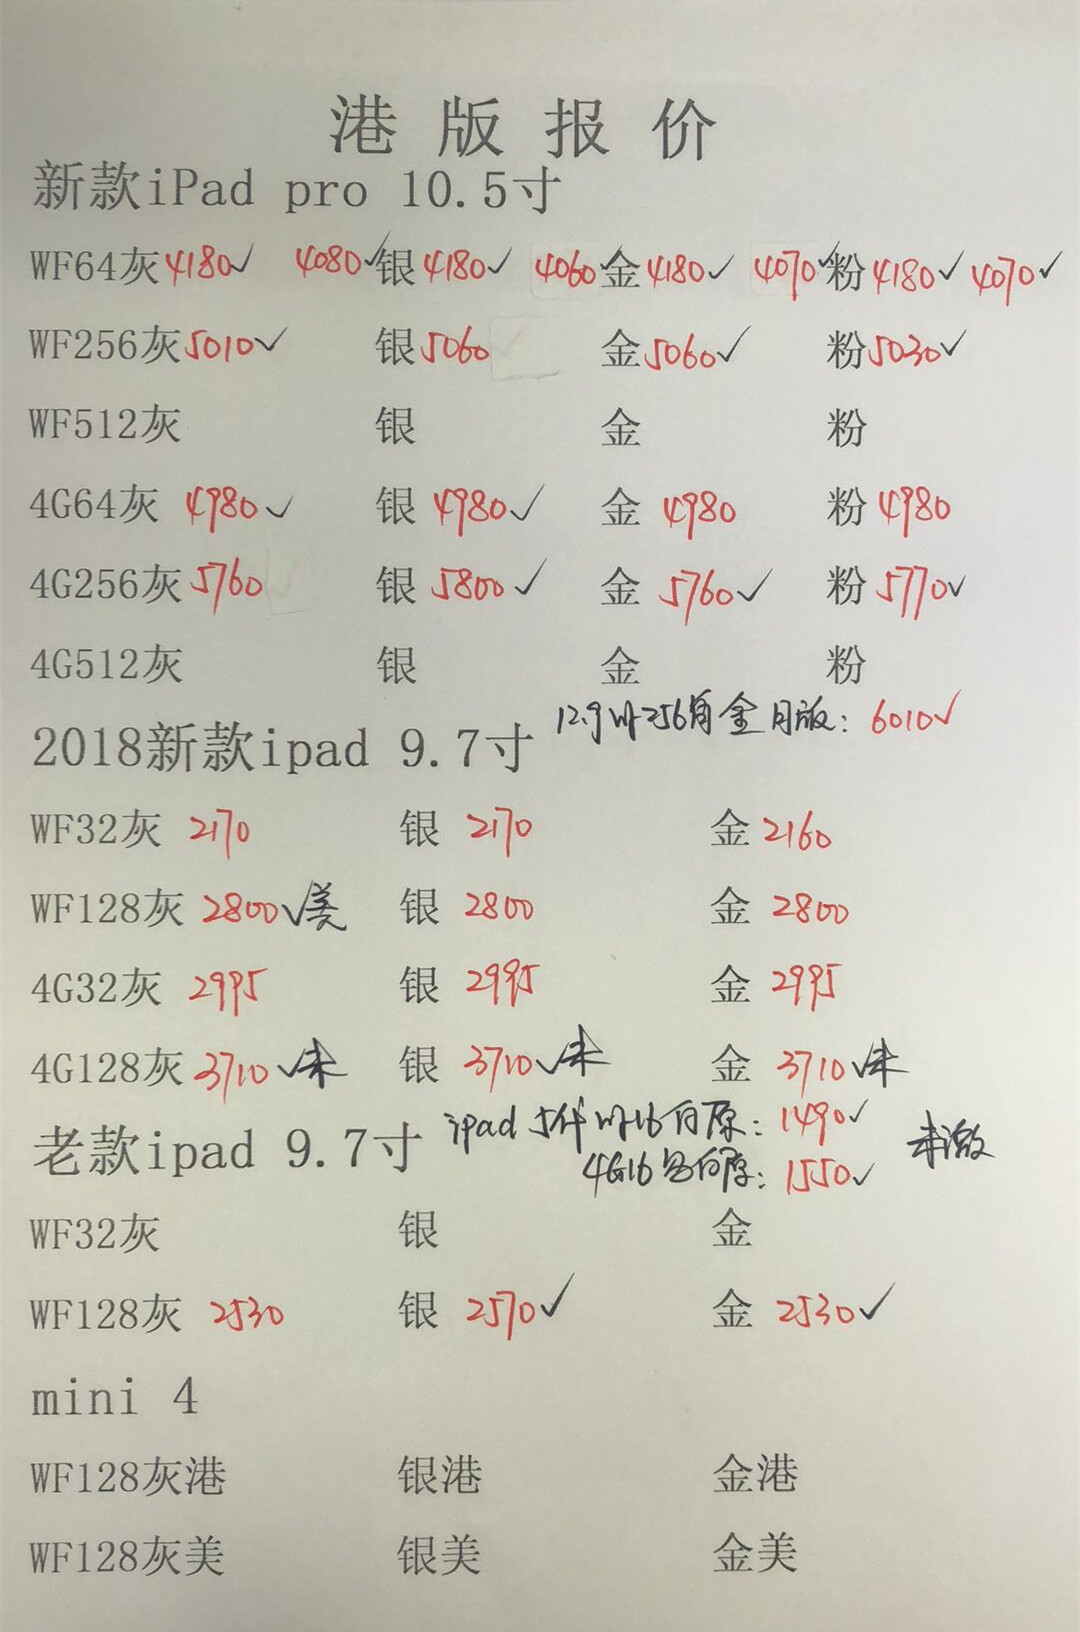 港版报价
新款iPad pro 10.5寸
WF64灰4180✓ 4080✓银4180✓ 4060✓金4180✓ 4070✓粉4180✓ 4070✓
WF256灰5010✓ 银5060 金5060✓ 粉5030✓
WF512灰 银 金 粉
4G64灰 4980✓ 银 4980✓ 金 4980 粉 4980
4G256灰 5760 银 5800✓ 金 5760✓ 粉 5770✓
4G512灰 银 金 粉
12.9 256 金 版: 6010✓
2018新款ipad 9.7寸
WF32灰 2170 银 2170 金 2160
WF128灰 2800✓美 银 2800 金 2800
4G32灰 2995 银 2995 金 2995
4G128灰 3710✓未 银 3710✓未 金 3710✓未
ipad 5代 16白原: 1490✓
老款ipad 9.7寸 未激
4G16 白原: 1550✓
WF32灰 银 金
WF128灰 2530 银 2570✓ 金 2530✓
mini 4
WF128灰港 银港 金港
WF128灰美 银美 金美